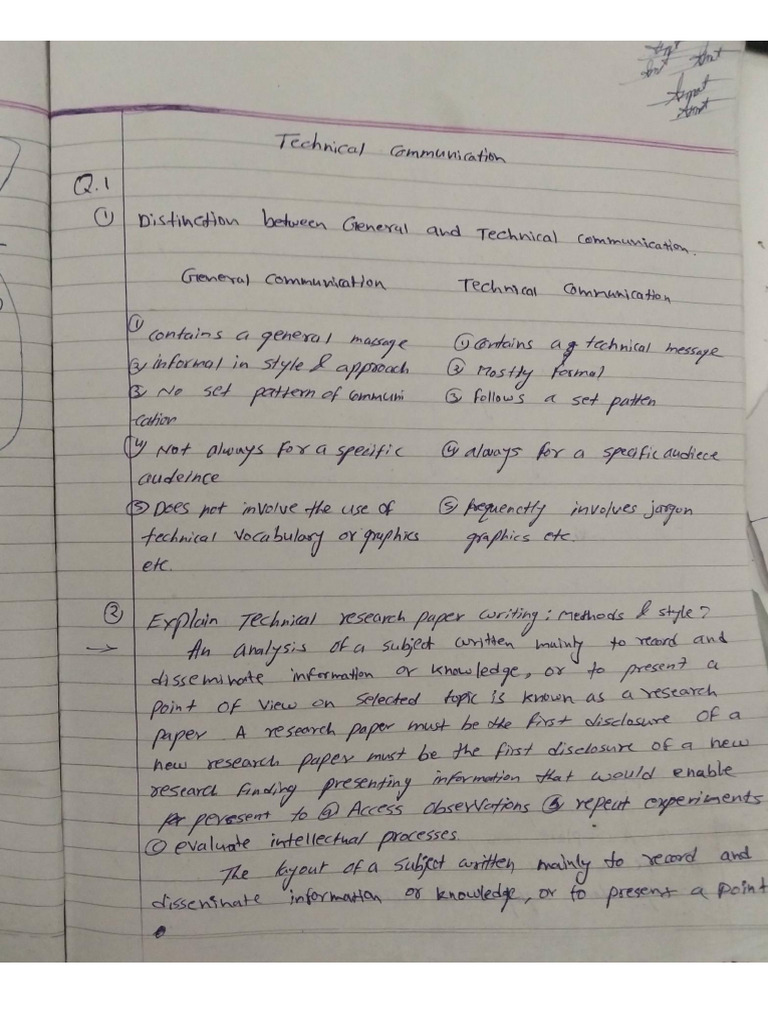 Technical Communication
Q.1
① Distinction between General and Technical communication.
General Communication Technical Communication
① contains a general massage ① contains a technical message
② informal in style & approach ② Mostly formal
③ No set pattern of communi ③ follows a set patten
cation
④ Not always for a specific ④ always for a specific audiece
audeince
⑤ Does not involve the use of ⑤ frequenctly involves jargon
technical vocabulary or graphics graphics etc.
etc.
② Explain Technical research paper writing: Methods & style?
→ An analysis of a subject written mainly to record and
disseminate information or knowledge, or to present a
point of view on selected topic is known as a research
paper. A research paper must be the first disclosure of a
new research paper must be the first disclosure of a new
research finding presenting information that would enable
peresent to ⓐ Access observations ⓑ repeat experiments
ⓒ evaluate intellectual processes.
The layout of a subject written mainly to record and
disseninate information or knowledge, or to present a point